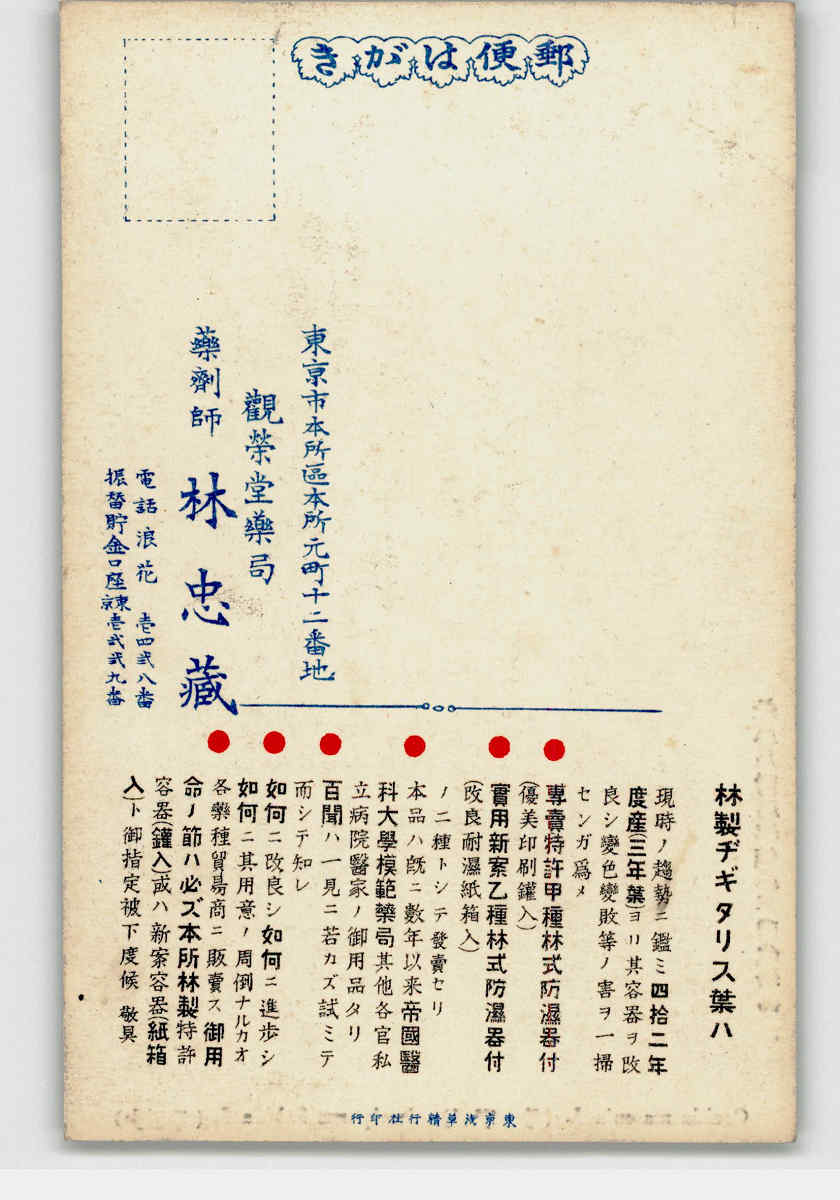 郵便はがき
東京市本所區本所元町十二番地
觀榮堂藥局
藥劑師 林忠藏
電話浪花 壱四弐八番
振替貯金口座東京壱弐弐九番
林製ヂギタリス葉ハ
現時ノ趨勢ニ鑑ミ四拾二年
度産(三年葉)ヨリ其容器ヲ改
良シ變色變敗等ノ害ヲ一掃
センガ爲メ
專賣特許甲種林式防濕器付
(優美印刷鑵入)
實用新案乙種林式防濕器付
(改良耐濕紙箱入)
ノ二種トシテ發賣セリ
本品ハ既ニ數年以来帝國醫
科大學模範藥局其他各官私
立病院醫家ノ御用品タリ
百聞ハ一見ニ若カズ試ミテ
而シテ知レ
如何ニ改良シ如何ニ進歩シ
如何ニ其用意ノ周倒ナルカオ
各藥種貿易商ニ販賣ス御用
命ノ節ハ必ズ本所林製特許
容器(鑵入)或ハ新案容器(紙箱
入)ト御指定被下度候 敬具
東京浅草精行社印行